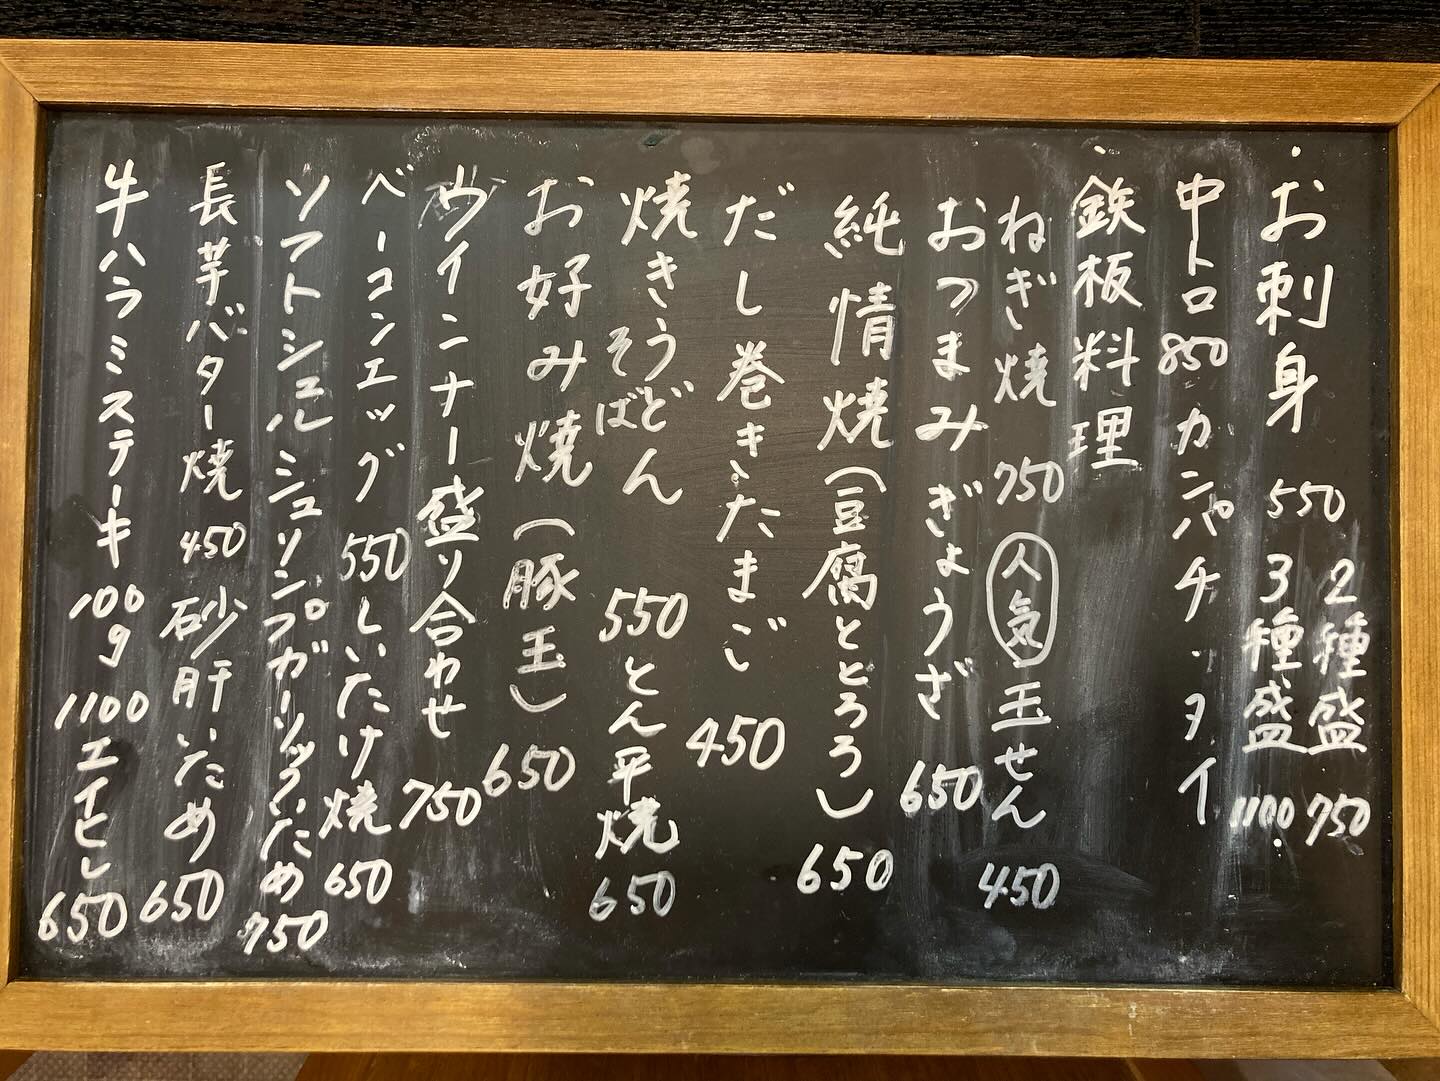 ・お刺身 550 2種盛 750
3種盛 1100
中トロ 850・カンパチ・タイ
・鉄板料理
ねぎ焼 750 人気 玉せん 450
おつまみぎょうざ 650
純情焼(豆腐ととろろ) 650
だし巻きたまご 450
焼きうどん そば 550 とん平焼 650
お好み焼(豚玉) 650
ウインナー盛り合わせ 750
ベーコンエッグ 550 しいたけ焼 650
ソフトシェルシュリンプガーリックいため 750
長芋バター焼 450 砂肝いため 650
牛ハラミステーキ 100g 1100 エイヒレ 650